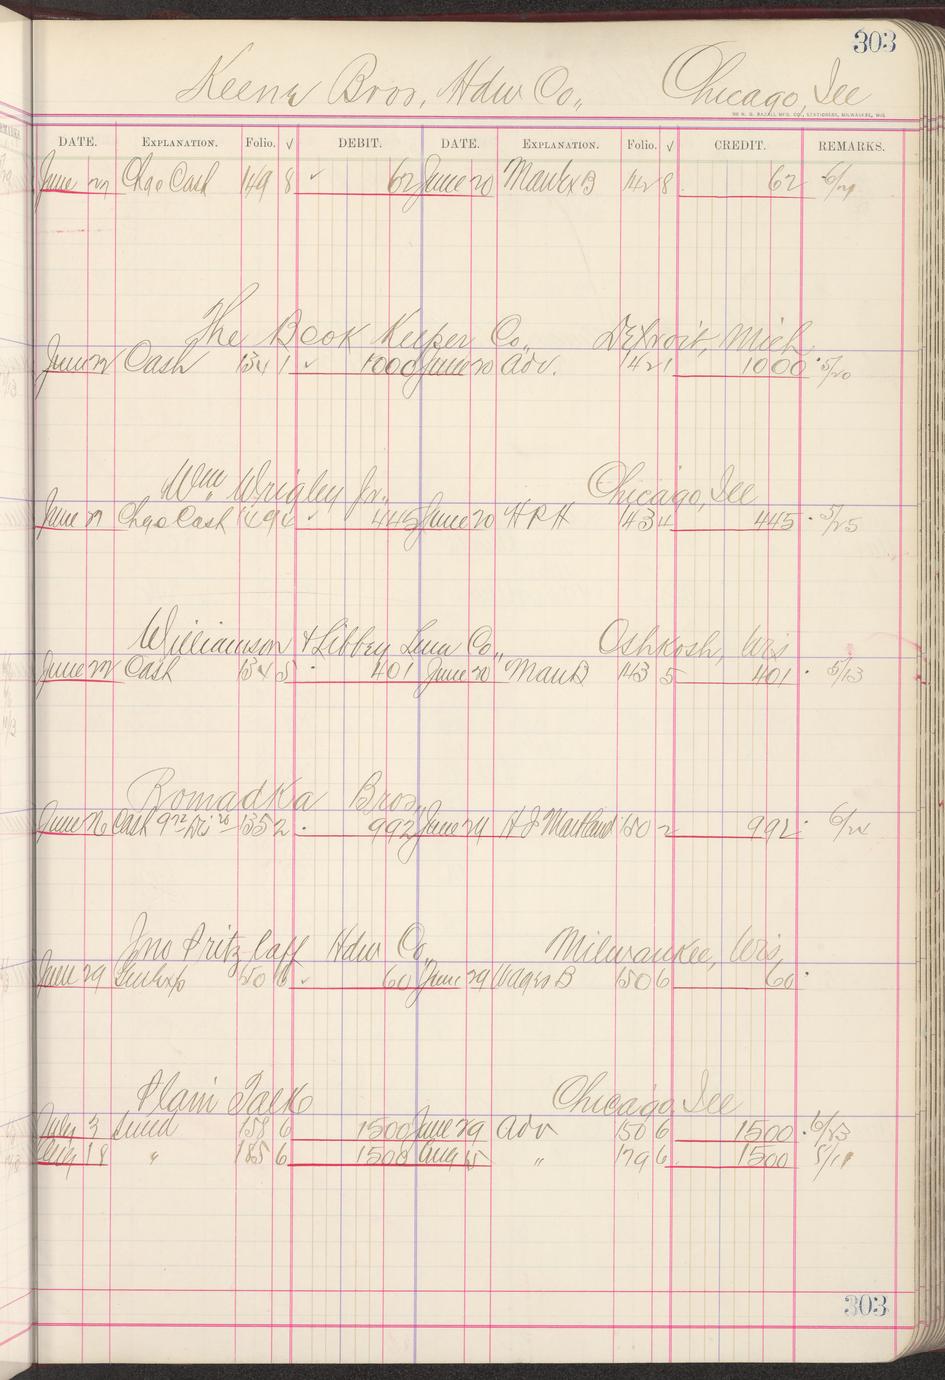 303
Keena Bros, Hdw Co., Chicago, Ill
DATE. EXPLANATION. Folio. √ DEBIT. DATE. EXPLANATION. Folio. √ CREDIT. REMARKS.
June 27 Chgo Cash 149 8 ✓ 62 June 20 142 8 62 6/
The Book Keeper Co., Detroit, Mich
June 22 Cash 134 1 ✓ 1000 June 20 Adv. 142 1 1000 5/20
Wm Wrigley Jr., Chicago, Ill
June 27 Chgo Cash 149 4 ✓ 445 June 20 H P H 143 4 445 5/25
Williamson & Libbey Lum Co., Oshkosh, Wis
June 22 Cash 134 5 401 June 20 Man B 143 5 401 5/13
Romadka Bros.,
June 26 Cash 135 2 992 June 29 150 2 992 6/24
Jno Pritzlaff Hdw Co., Milwaukee, Wis,
June 29 150 6 ✓ 60 June 29 Wages B 150 6 60
Plain Talk Chicago, Ill
July 3 Sund 159 6 1500 June 29 Adv 150 6 1500 6/23
Aug 18 " 185 6 1500 Aug 15 " 179 6 1500 5/11
303